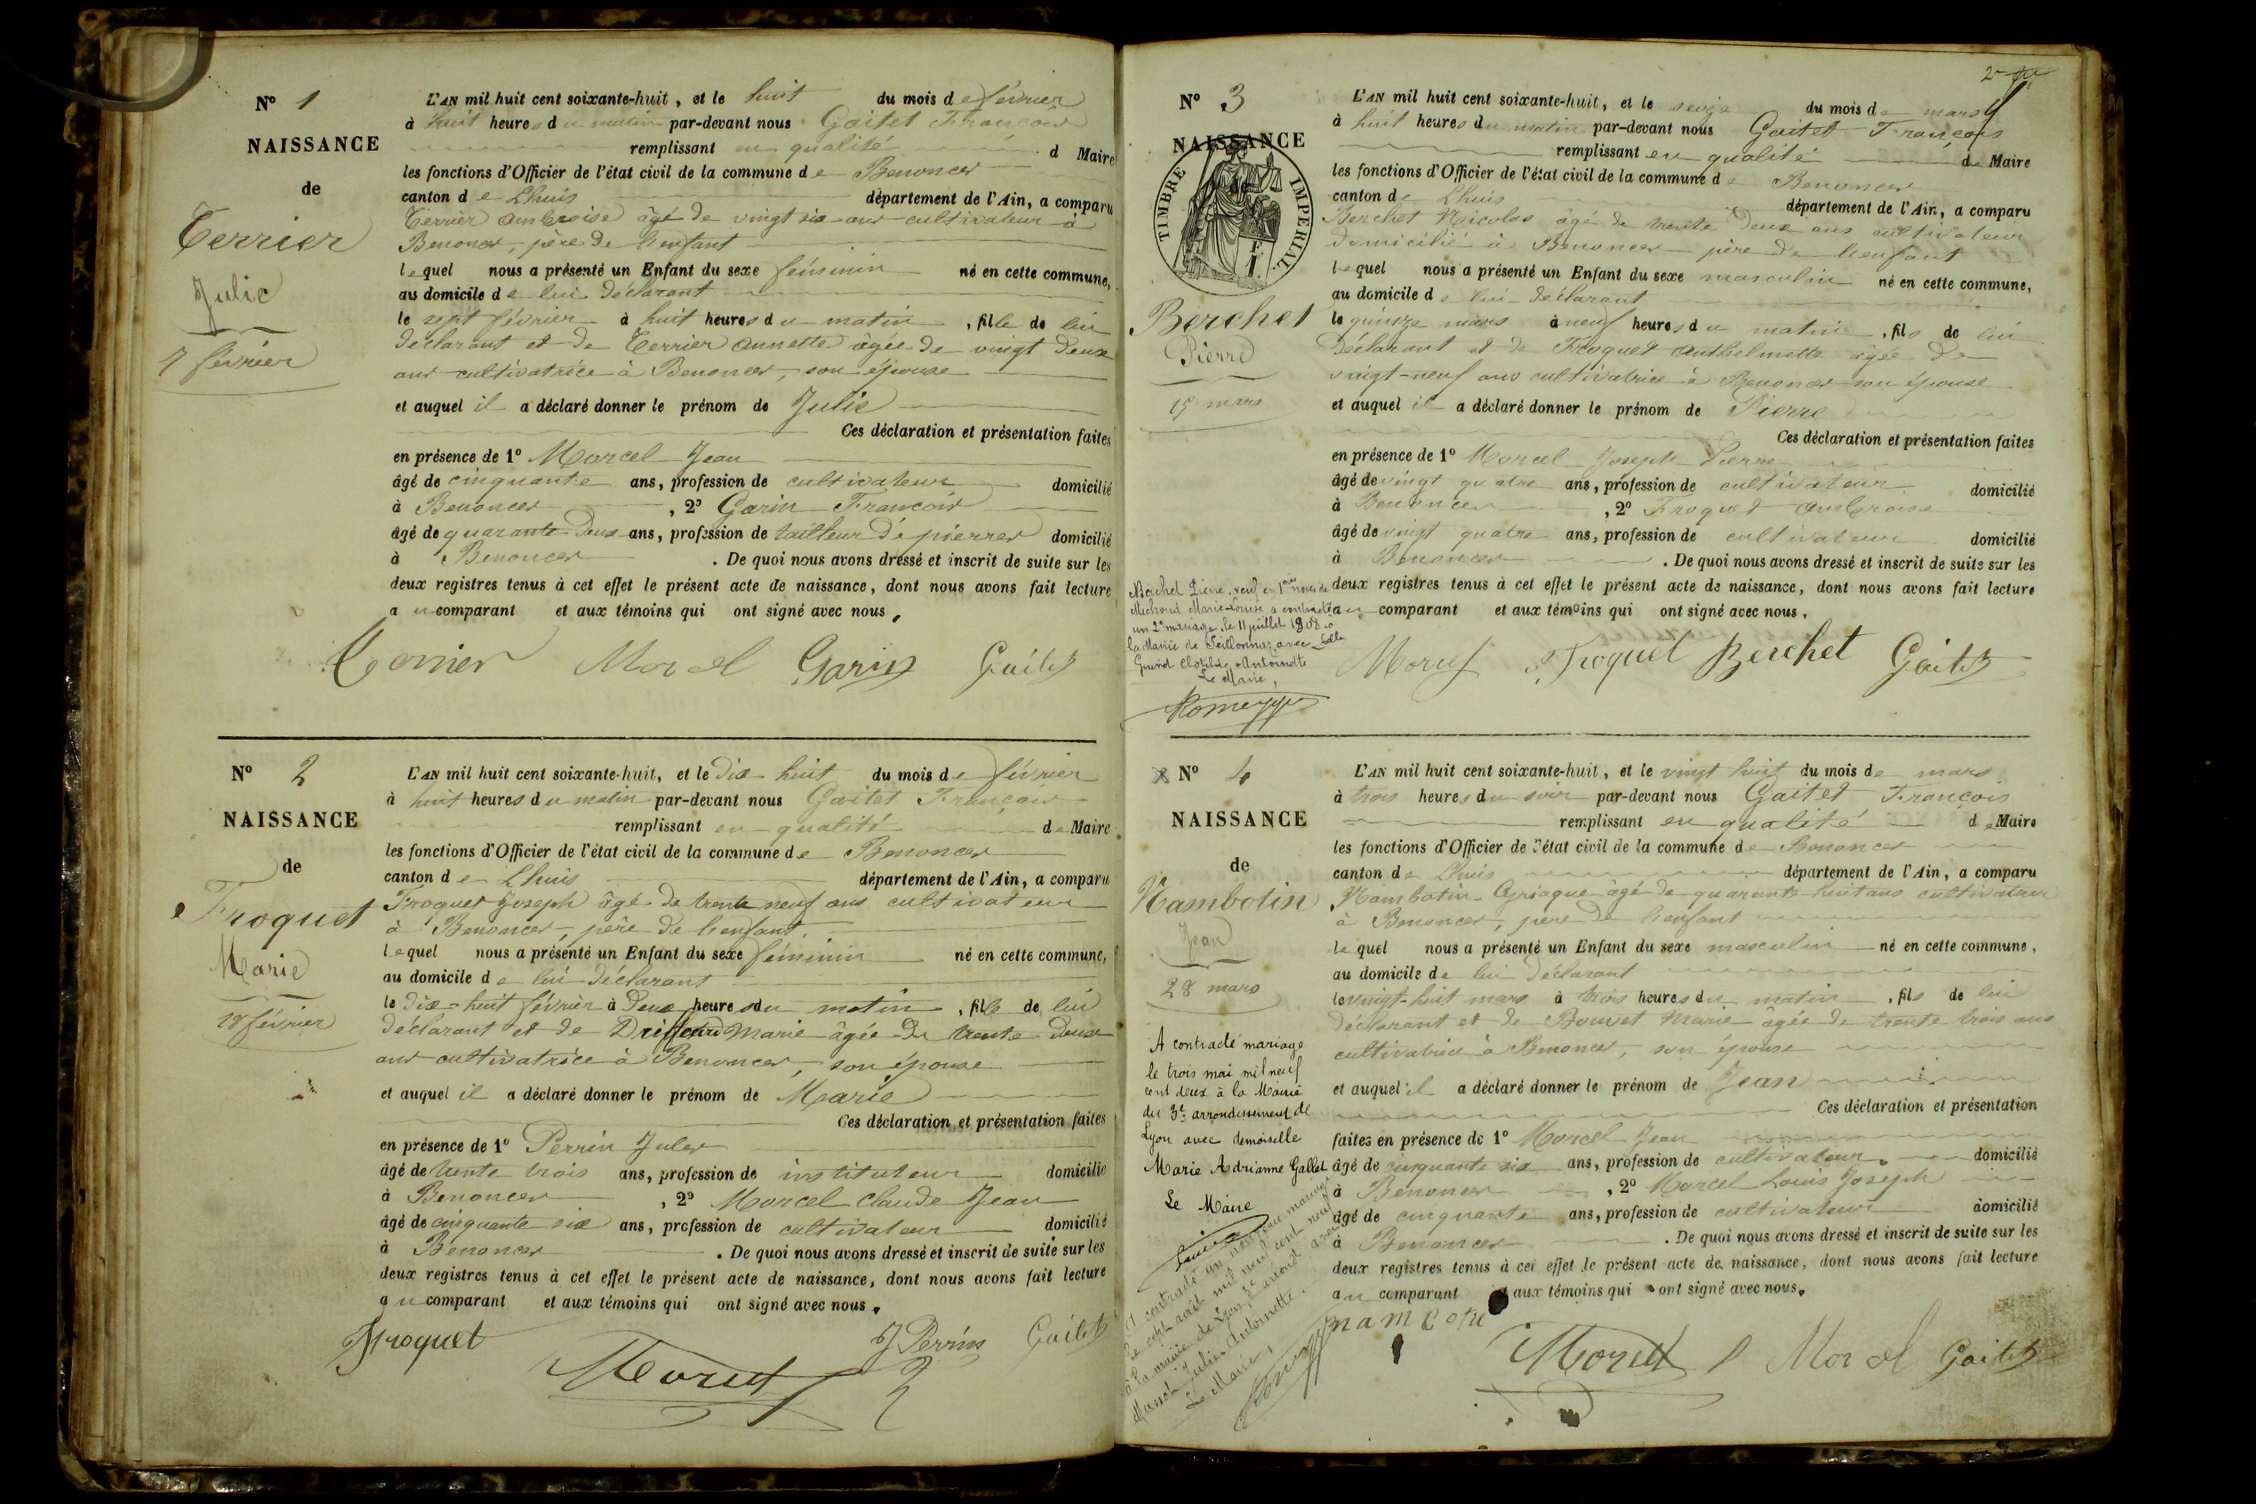 N° 1
NAISSANCE
de
Terrier
Julie
7 février
L'AN mil huit cent soixante-huit, et le huit du mois de février
à huit heures du matin par-devant nous Gaitet François
remplissant en qualité d Maire
les fonctions d'Officier de l'état civil de la commune de Benonces
canton de Lhuis département de l'Ain, a comparu
Terrier Ambroise âgé de vingt six ans cultivateur à
Benonces, père de l'enfant
lequel nous a présenté un Enfant du sexe féminin né en cette commune,
au domicile de lui déclarant
le sept février à huit heures du matin, fille de lui
déclarant et de Terrier Annette âgée de vingt deux
ans cultivatrice à Benonces, son épouse
et auquel il a déclaré donner le prénom de Julie
Ces déclaration et présentation faites
en présence de 1° Morcel Jean
âgé de cinquante ans, profession de cultivateur domicilié
à Benonces, 2° Garin François
âgé de quarante deux ans, profession de tailleur de pierres domicilié
à Benonces. De quoi nous avons dressé et inscrit de suite sur les
deux registres tenus à cet effet le présent acte de naissance, dont nous avons fait lecture
au comparant et aux témoins qui ont signé avec nous.
Terrier Morcel Garin Gaitet
N° 2
NAISSANCE
de
Froquet
Marie
18 février
L'AN mil huit cent soixante-huit, et le dix huit du mois de février
à huit heures du matin par-devant nous Gaitet François
remplissant en qualité de Maire
les fonctions d'Officier de l'état civil de la commune de Benonces
canton de Lhuis département de l'Ain, a comparu
Froquet Joseph âgé de trente neuf ans cultivateur
à Benonces, père de l'enfant
lequel nous a présenté un Enfant du sexe féminin né en cette commune,
au domicile de lui déclarant
le dix-huit février à deux heures du matin, fille de lui
déclarant et de Marie âgée de trente deux
ans cultivatrice à Benonces, son épouse
et auquel il a déclaré donner le prénom de Marie
Ces déclaration et présentation faites
en présence de 1° Perrin Jules
âgé de trente trois ans, profession de instituteur domicilié
à Benonces, 2° Morcel Claude Jean
âgé de cinquante six ans, profession de cultivateur domicilié
à Benonces. De quoi nous avons dressé et inscrit de suite sur les
deux registres tenus à cet effet le présent acte de naissance, dont nous avons fait lecture
au comparant et aux témoins qui ont signé avec nous.
Froquet J Perrin Gaitet
Morcel
N° 3
NAISSANCE
de
TIMBRE IMPÉRIAL
Berchet
Pierre
15 mars
L'AN mil huit cent soixante-huit, et le seize du mois de mars
à huit heures du matin par-devant nous Gaitet François
remplissant en qualité de Maire
les fonctions d'Officier de l'état civil de la commune de Benonces
canton de Lhuis département de l'Ain, a comparu
Berchet Nicolas âgé de trente deux ans cultivateur
domicilié à Benonces père de l'enfant
lequel nous a présenté un Enfant du sexe masculin né en cette commune,
au domicile de lui déclarant
le quinze mars à neuf heures du matin, fils de lui
déclarant et de Froquet Anthelmette âgée de
vingt-neuf ans cultivatrice à Benonces son épouse
et auquel il a déclaré donner le prénom de Pierre
Ces déclaration et présentation faites
en présence de 1° Morcel Joseph Pierre
âgé de vingt quatre ans, profession de cultivateur domicilié
à Benonces, 2° Froquet Ambroise
âgé de vingt quatre ans, profession de cultivateur domicilié
à Benonces. De quoi nous avons dressé et inscrit de suite sur les
deux registres tenus à cet effet le présent acte de naissance, dont nous avons fait lecture
au comparant et aux témoins qui ont signé avec nous.
Berchet Pierre, veuf en 1ères noces de
Marie-Louise a contracté
un 2e mariage le 11 juillet 1908 à
la Mairie de avec Delle
Clotilde Antoinette
Le Maire,
Morcel Froquet Berchet Gaitet
N° 4
NAISSANCE
de
Nambotin
Jean
28 mars
L'AN mil huit cent soixante-huit, et le vingt huit du mois de mars
à trois heures du soir par-devant nous Gaitet François
remplissant en qualité de Maire
les fonctions d'Officier de l'état civil de la commune de Benonces
canton de Lhuis département de l'Ain, a comparu
Nambotin Cyriaque âgé de quarante huit ans cultivateur
à Benonces, père de l'enfant
lequel nous a présenté un Enfant du sexe masculin né en cette commune,
au domicile de lui déclarant
le vingt-huit mars à trois heures du matin, fils de lui
déclarant et de Bouvet Marie âgée de trente trois ans
cultivatrice à Benonces, son épouse
et auquel il a déclaré donner le prénom de Jean
Ces déclaration et présentation
faites en présence de 1° Morcel Jean
âgé de cinquante six ans, profession de cultivateur domicilié
à Benonces, 2° Morcel Louis Joseph
âgé de cinquante ans, profession de cultivateur domicilié
à Benonces. De quoi nous avons dressé et inscrit de suite sur les
deux registres tenus à cet effet le présent acte de naissance, dont nous avons fait lecture
au comparant aux témoins qui ont signé avec nous.
A contracté mariage
le trois mai mil neuf
cent deux à la Mairie
du 3e arrondissement de
Lyon avec demoiselle
Marie Adrianne Gallet
Le Maire
A contracté un nouveau mariage
le sept août mil neuf cent neuf
à la mairie de Lyon, 3e arrondt avec
Julie Antoinette.
Le Maire,
Morcel Morcel Gaitet